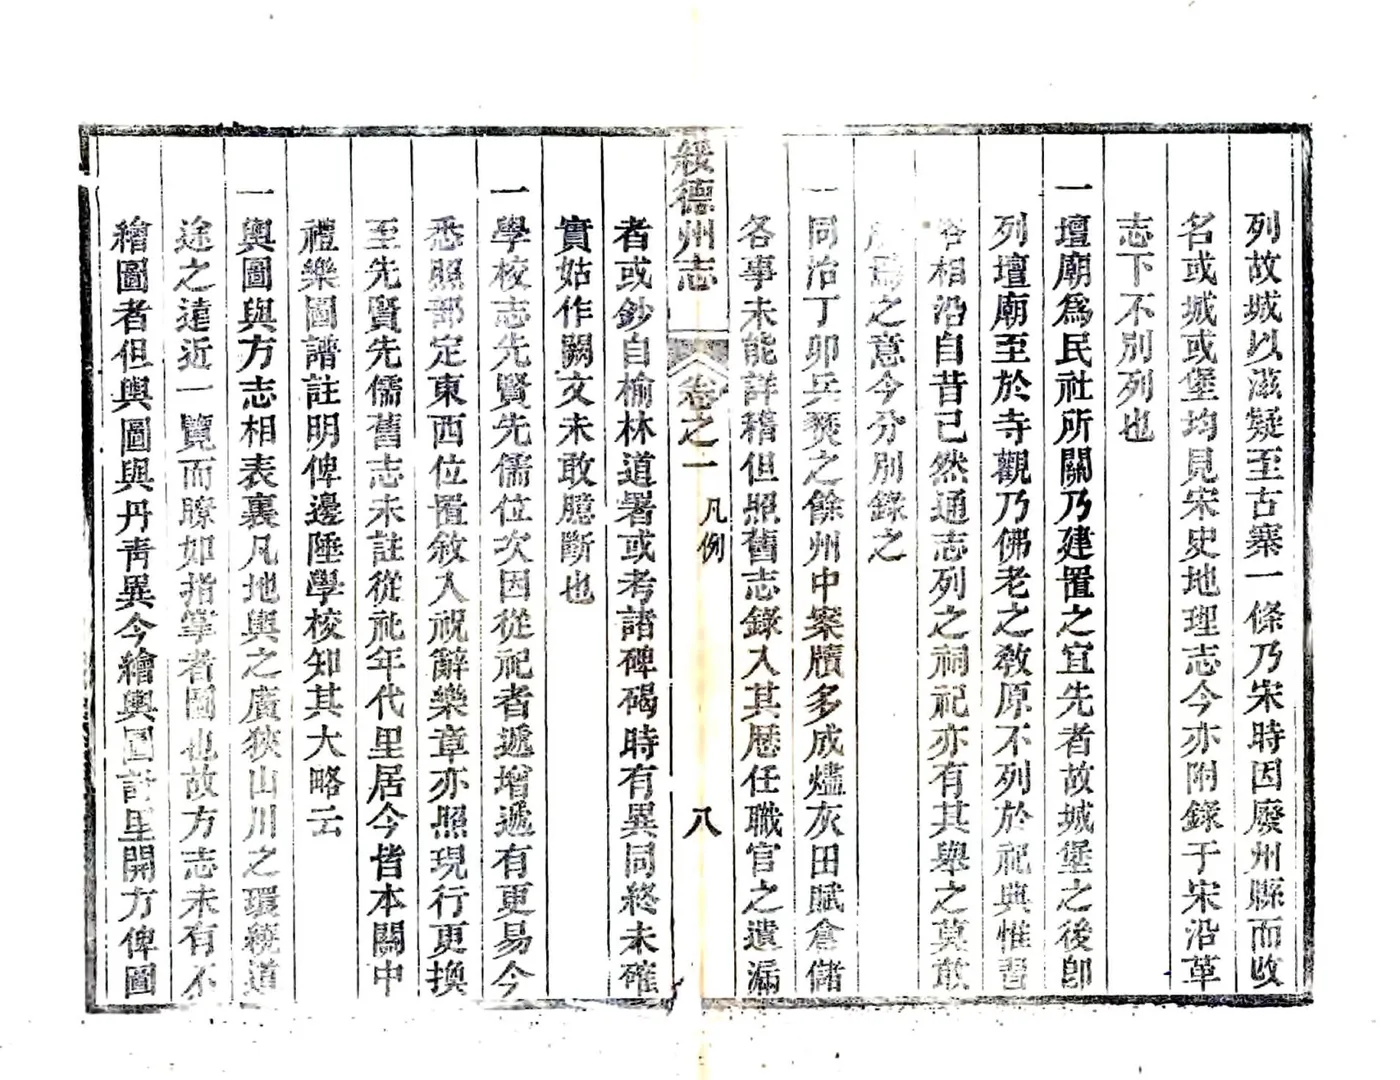 列故城以滋疑至古寨一條乃宋時因廢州縣而改
名或城或堡均見宋史地理志今亦附錄于宋沿革
志下不別列也
一壇廟爲民社所關乃建置之宜先者故城堡之後卽
列壇廟至於寺觀乃佛老之敎原不列於祀典惟習
俗相沿自昔已然通志列之祠祀亦有其舉之莫敢
之意今分別錄之
一同治丁卯兵燹之餘州中案牘多成燼灰田賦倉儲
各事未能詳稽但照舊志錄入其歷任職官之遺漏
綏德州志
卷之一
凡例
八
者或鈔自榆林道署或考諸碑碣時有異同終未確
實姑作闕文未敢臆斷也
一學校志先賢先儒位次因從祀者遞增遞有更易今
悉照部定東西位置敘入祝辭樂章亦照現行更換
至先賢先儒舊志未註從祀年代里居今皆本關中
禮樂圖譜註明俾邊陲學校知其大略云
一輿圖與方志相表裏凡地輿之廣狹山川之環繞道
途之遠近一覽而瞭如指掌者圖也故方志未有不
繪圖者但輿圖與丹靑異今繪輿圖計里開方俾圖